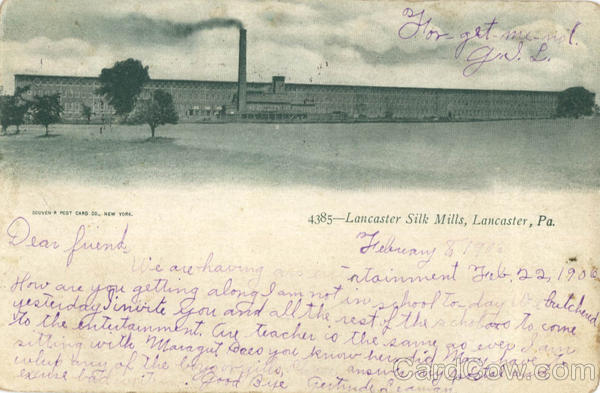 For-get-me-not.
G. L.
SOUVENIR POST CARD CO., NEW YORK.
4385—Lancaster Silk Mills, Lancaster, Pa.
Dear friend
February 8
We are having an entertainment Feb. 22, 1906
How are you getting along I am not in school to day We butchered
yesterday I invite you and all the rest of the scholars to come
to the entertainment Are teacher is the same as ever I am
sitting with Margret Does you know her did Mary have
any of the
excuse bad Good Bye Gertrude Leaman
CardCow.com